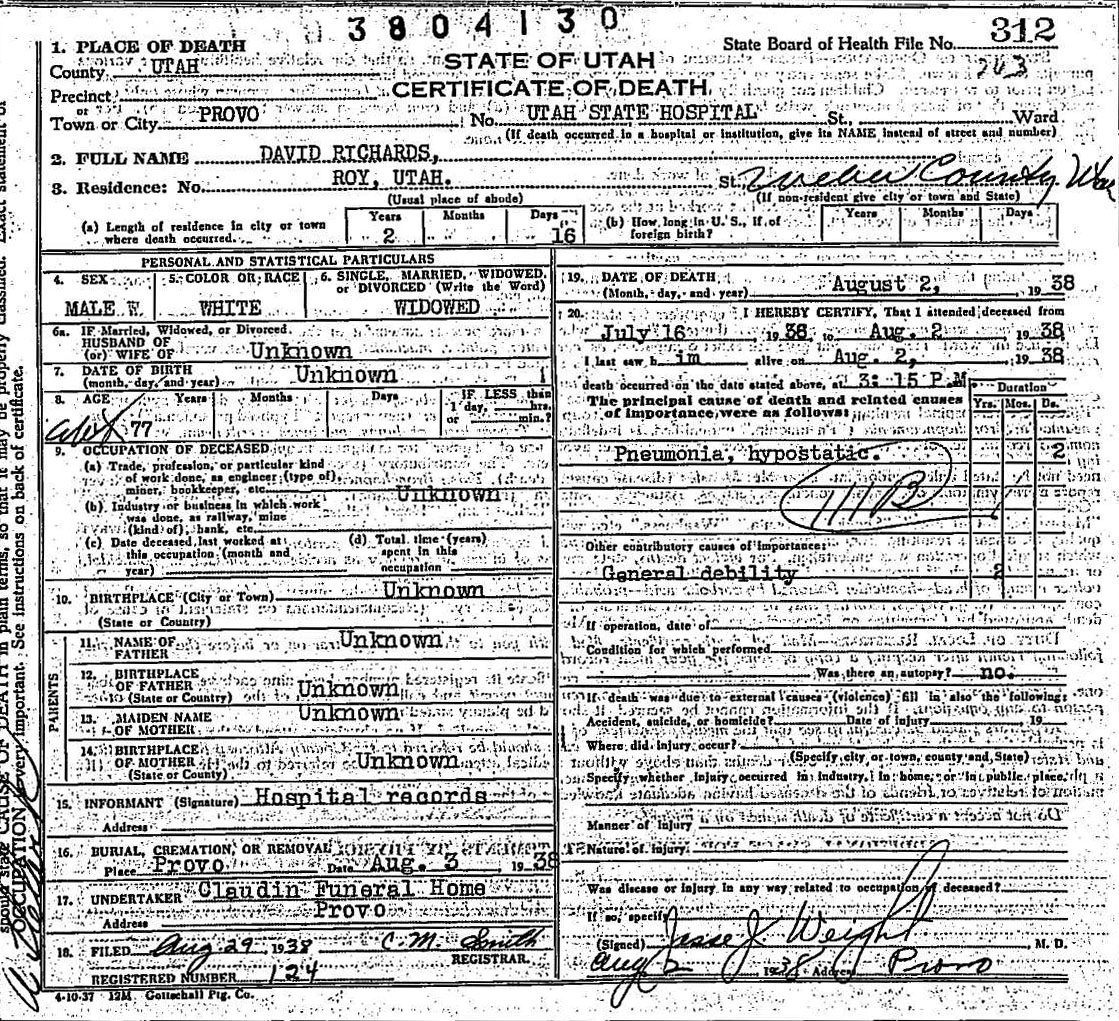 3804130
1. PLACE OF DEATH
County UTAH
Precinct
or
Town or City PROVO
STATE OF UTAH
CERTIFICATE OF DEATH
State Board of Health File No. 312
243
No. UTAH STATE HOSPITAL St., Ward
(If death occurred in a hospital or institution, give its NAME instead of street and number)
2. FULL NAME DAVID RICHARDS,
3. Residence: No. ROY, UTAH. St. Weber County
(Usual place of abode)
(If non-resident give city or town and State)
(a) Length of residence in city or town where death occurred. Years 2 Months Days 16
(b) How long in U. S., if of foreign birth? Years Months Days
PERSONAL AND STATISTICAL PARTICULARS
4. SEX MALE W.
5. COLOR OR RACE WHITE
6. SINGLE, MARRIED, WIDOWED, or DIVORCED (Write the Word) WIDOWED
6a. IF Married, Widowed, or Divorced
HUSBAND OF
(or) WIFE OF Unknown
7. DATE OF BIRTH
(month, day, and year) Unknown
8. AGE Years Months Days IF LESS than
1 day, hrs.
or min.?
abt 77
9. OCCUPATION OF DECEASED
(a) Trade, profession, or particular kind
of work done, as engineer (type of)
miner, bookkeeper, etc. Unknown
(b) Industry or business in which work
was done, as railway, mine
(kind of), bank, etc.
(c) Date deceased last worked at
this occupation (month and
year)
(d) Total time (years)
spent in this
occupation
10. BIRTHPLACE (City or Town) Unknown
(State or Country)
PARENTS
11. NAME OF
FATHER Unknown
12. BIRTHPLACE
OF FATHER Unknown
(State or Country)
13. MAIDEN NAME
OF MOTHER Unknown
14. BIRTHPLACE
OF MOTHER Unknown
(State or County)
15. INFORMANT (Signature) Hospital records
Address
16. BURIAL, CREMATION, OR REMOVAL
Place Provo Date Aug. 3 1938
17. UNDERTAKER Claudin Funeral Home
Address Provo
18. FILED Aug 29 1938 C. M. Smith
REGISTRAR.
REGISTERED NUMBER 124
4-10-37 12M Gottschall Ptg. Co.
19. DATE OF DEATH
(Month, day, and year) August 2, 1938
20. I HEREBY CERTIFY, That I attended deceased from
July 16 1938 to Aug. 2 1938
I last saw him alive on Aug. 2, 1938
death occurred on the date stated above, at 3:15 P.M
The principal cause of death and related causes
of importance were as follows:
Duration
Yrs. Mos. Ds.
Pneumonia, hypostatic. 2
Other contributory causes of importance:
General debility 2
If operation, date of
Condition for which performed
Was there an autopsy? no.
If death was due to external causes (violence) fill in also the following:
Accident, suicide, or homicide? Date of injury 19
Where did injury occur?
(Specify city or town, county and State)
Specify whether injury occurred in industry, in home, or in public place.
Manner of injury
Nature of injury
Was disease or injury in any way related to occupation of deceased?
If so, specify
(Signed) Jesse J. Weight M. D.
Aug 2 1938 Address Provo
should state CAUSE OF DEATH in plain terms, so that it may be properly classified. Exact statement of
OCCUPATION very important. See instructions on back of certificate.